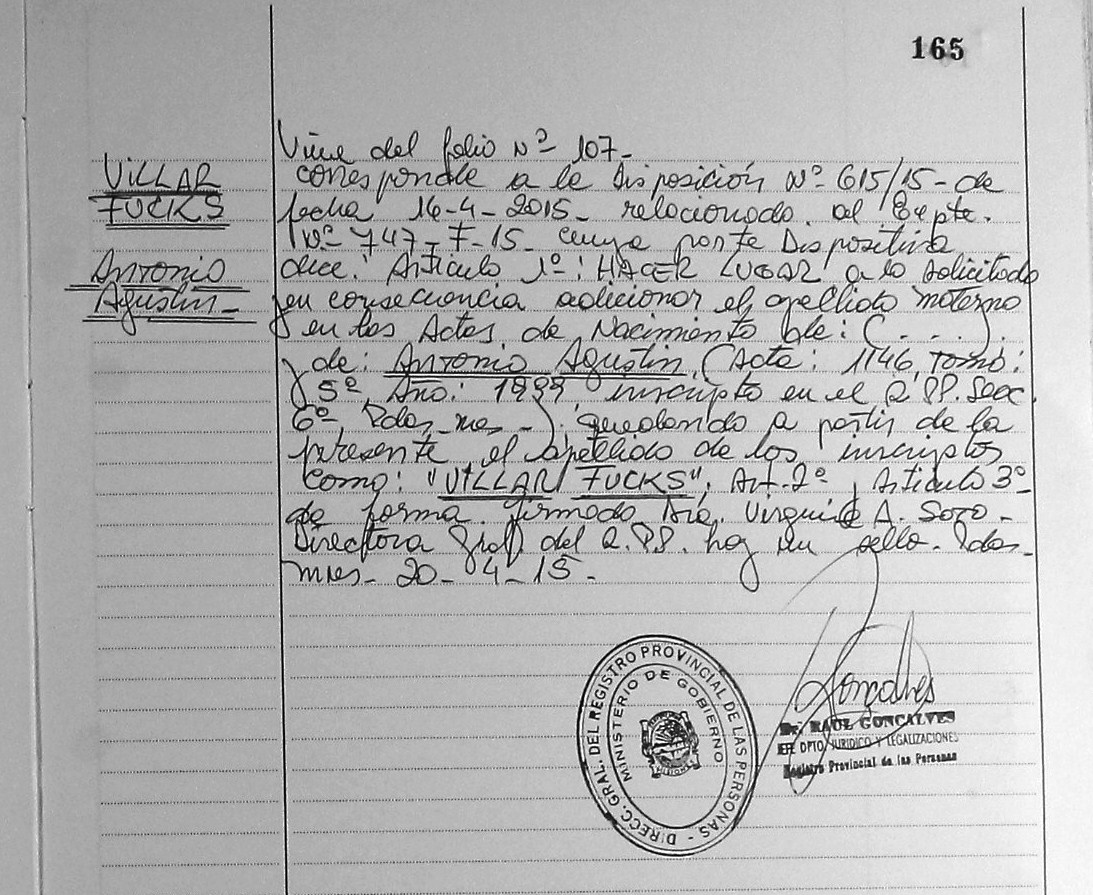 165
VILLAR
FUCKS
Antonio
Agustin_
Viene del folio Nº 107_
corresponde a la Disposición Nº 615/15_ de
fecha 14-4-2015_ relacionado al Expte.
Nº 747_F_15_ cuya parte Dispositiva
dice: Articulo 1º: HACER LUGAR a lo solicitado
en consecuencia adicionar el apellido materno
en las Actas de Nacimiento de: (.....)
de: Antonio Agustin (Acta: 1146, Tomo:
5º, Año: 1999 inscripto en el R.PP. Secc.
6º, Pdas_mes_). quedando a partir de la
presente el apellido de los inscriptos
como: "VILLAR FUCKS". Art-2º, Articulo 3º
de forma. firmado Dra. A. Soto_
Directora Gral. del R.PP. hay un sello. Pdas_
mnes_ 20_04_15_
DIRECC. GRAL. DEL REGISTRO PROVINCIAL DE LAS PERSONAS -
MINISTERIO DE GOBIERNO
MISIONES
Goncalves
Dr. RAUL GONCALVES
JEFE DPTO JURIDICO Y LEGALIZACIONES
Registro Provincial de las Personas